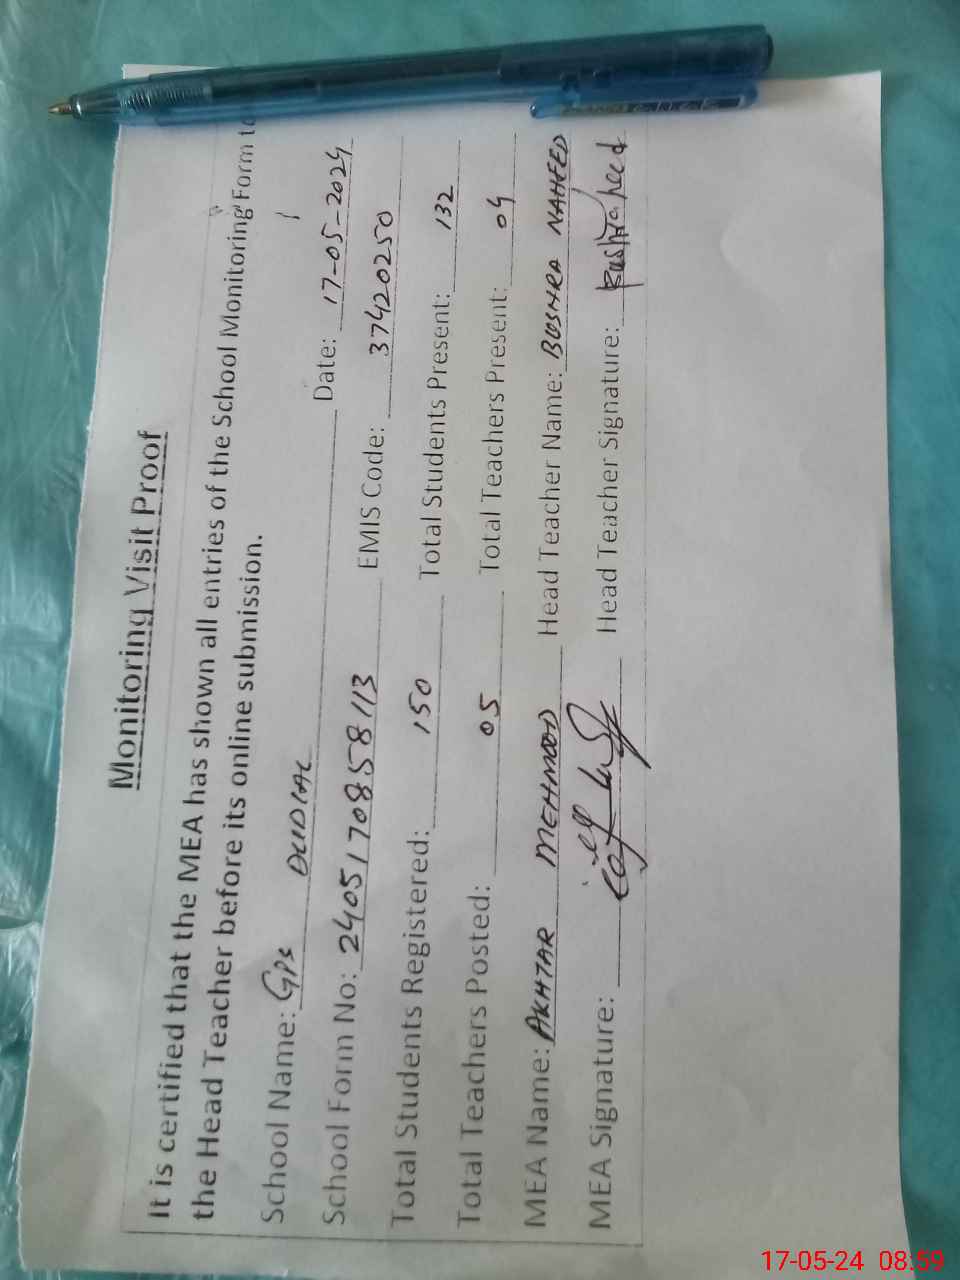 Monitoring Visit Proof
It is certified that the MEA has shown all entries of the School Monitoring Form to
the Head Teacher before its online submission.
School Name: GPS DUDIAL Date: 17-05-2024
School Form No: 2405170858113 EMIS Code: 37420250
Total Students Registered: 150 Total Students Present: 132
Total Teachers Posted: 05 Total Teachers Present: 04
MEA Name: AKHTAR MEHMOOD Head Teacher Name: BUSHRA NAHEED
MEA Signature: Head Teacher Signature:
17-05-24 08:59